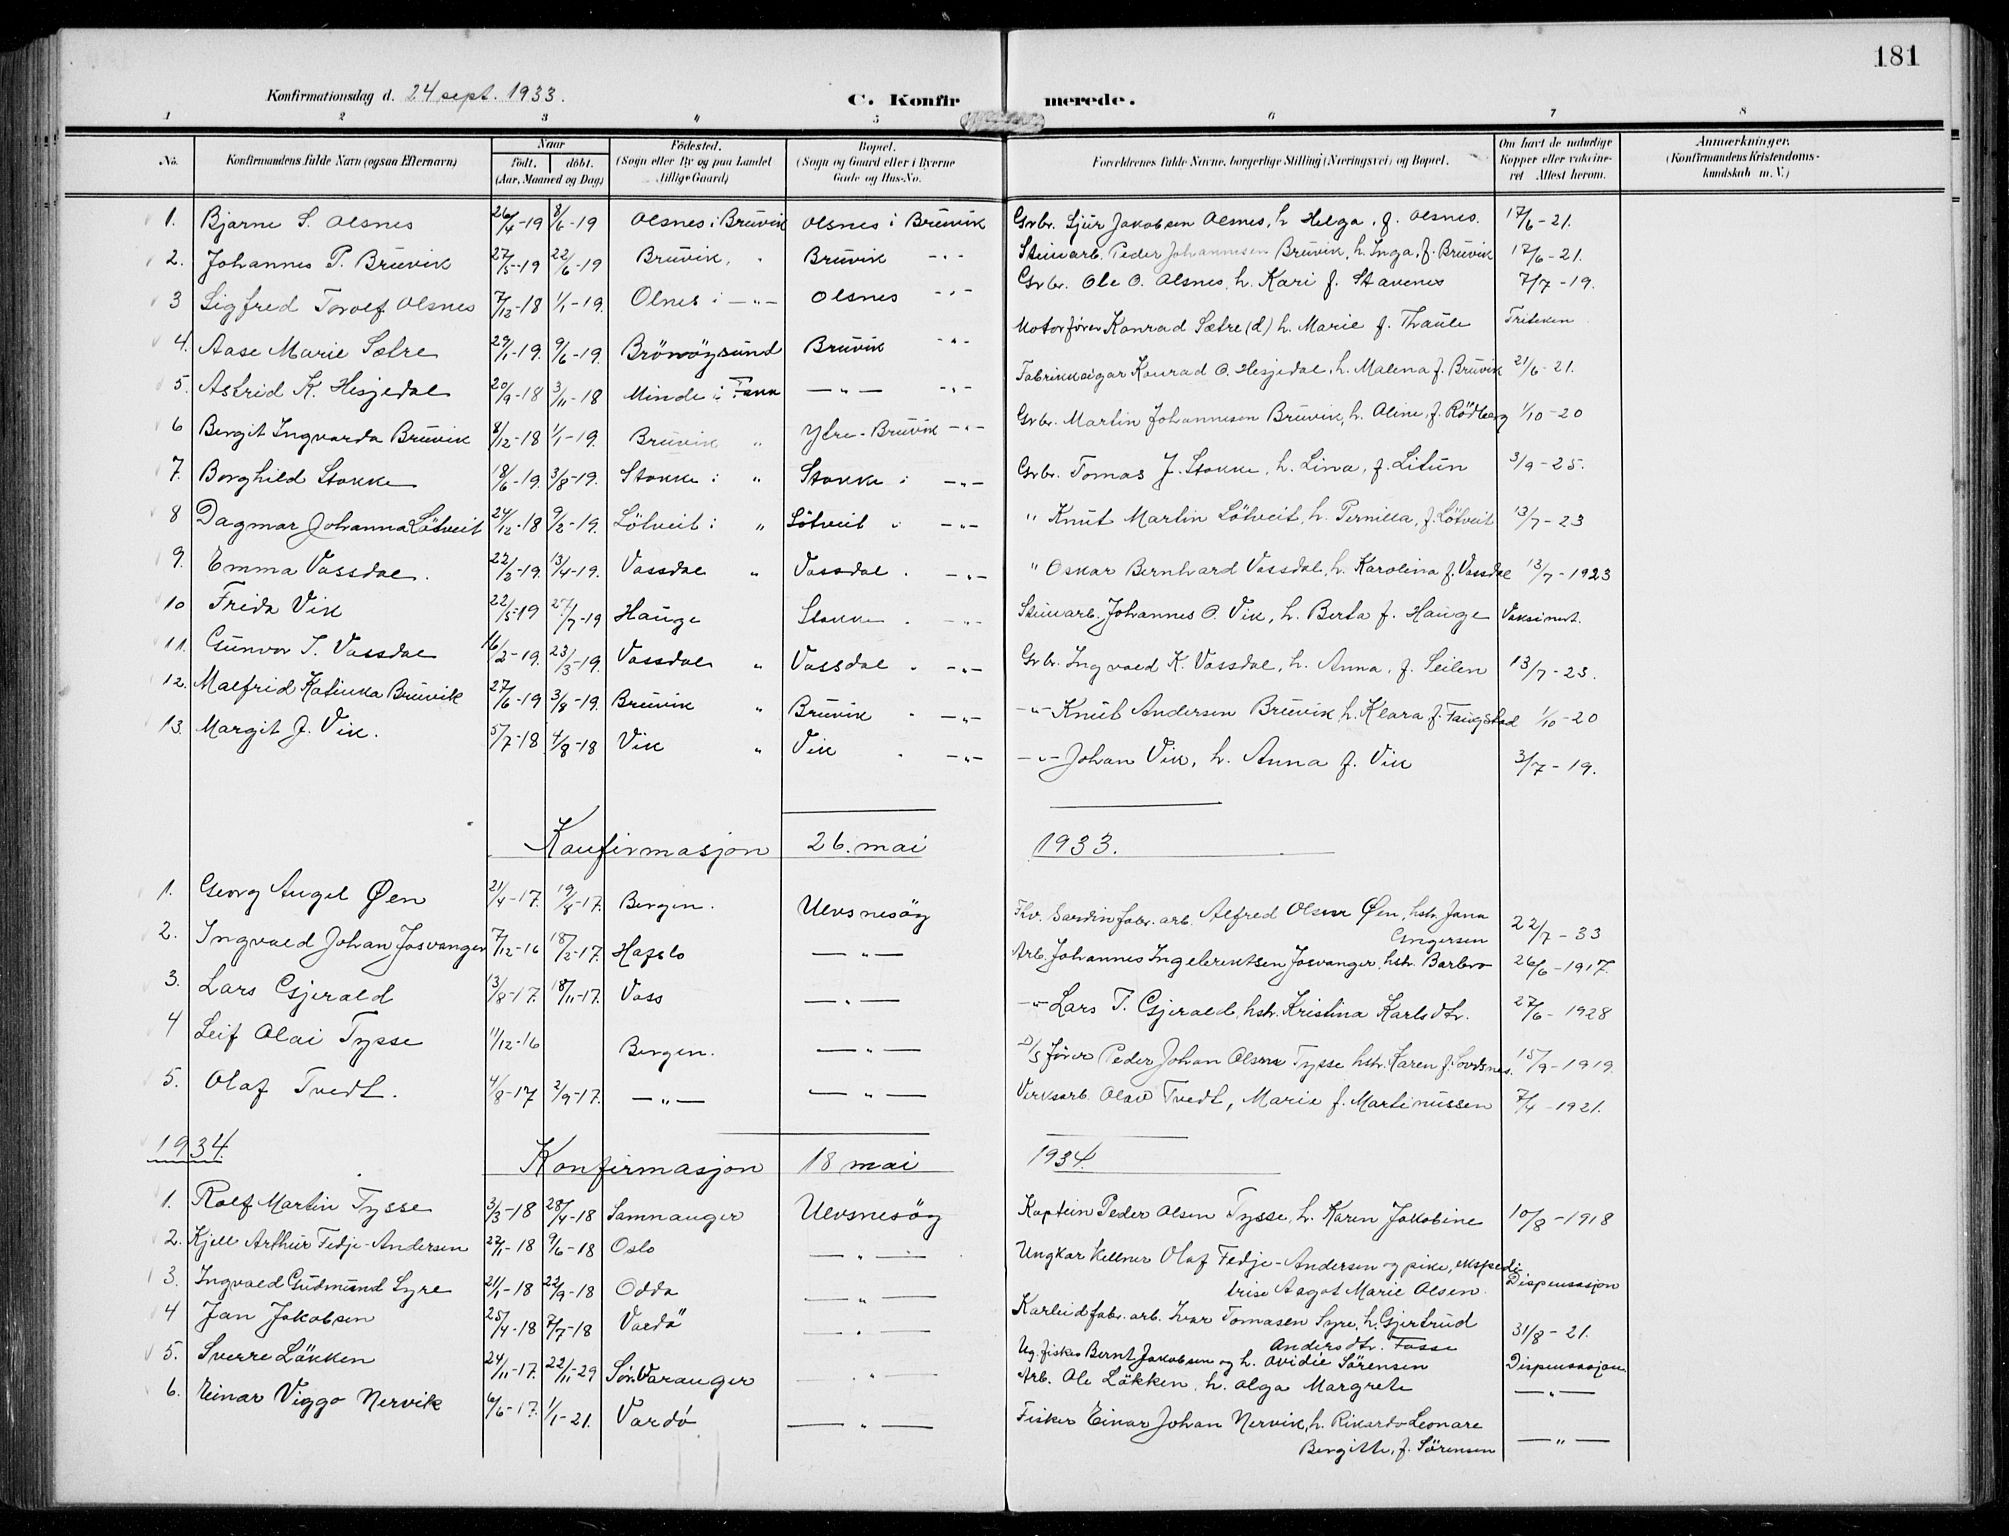 181
Konfirmationsdag d. 24 sept. 1933.
C. Konfirmerede.
1 2 3 " 5 6 7 8
No. Konfirmandens fulde Navn (ogsaa Efternavn) Naar født. døbt. (Aar, Maaned og Dag) Fødested. (Sogn eller By og paa Landet tillige Gaard) Bopæl. (Sogn og Gaard eller i Byerne Gade og Hus-No. Forældrenes fulde Navne, borgerlige Stilling (Næringsvei) og Bopæl. Om havt de naturlige Kopper eller vaccineret Attest herom. Anmærkninger. (Konfirmandens Kristendomskundskab m. V.)
1. Bjarne S. Olsnes 26/4-19 8/6-19 Olsnes i Bruvik Olsnes i Bruvik Grbr. Sjur Jakobsen Olsnes, h. Helga, f. Olsnes. 17/6-21.
2. Johannes P. Bruvik 27/5-19 22/6-19 Bruvik, " Bruvik -"- Steinarb. Peder Johannesen Bruvik, h. Inga, f. Bruvik 17/6-21.
3 Sigfred Torolf Olsnes 7/12-18 1/1-19. Olnes i -"- Olsnes -"- Grbr. Ole O. Olsnes, h. Kari f. Stavenes 7/7-19.
4. Aase Marie Sætre 29/1-19. 9/6-19. Brönöysund Bruvik -"- Motorfører Konrad Sætre (d) h. Marie f. Thaule Triteken
5. Astrid K. Hesjedal 20/9-18 3/11-18 Minde i Fana -"- -"- Fabrikkeigar Konrad O. Hesjedal, h. Malena f. Bruvik 21/6-21.
6 Bergit Ingvarda Bruvik 8/12-18 1/1-19. Bruvik " Ytre-Bruvik -"- Grbr. Martin Johannesen Bruvik, h. Oline, f. Rödberg 1/10-20
7. Borghild Stokke 18/6-19. 3/8-19. Stokke i " Stokke i -"- Grbr. Tomas J. Stokke, h. Lina, f. Litun 3/9-25.
8 Dagmar Johanna Lötveit 24/12-18 9/2-19. Lötveit i " Lötveit " -"- " Knut Martin Lötveit, h. Pernilla, f. Lötveit 13/7-23
9. Emma Vassdal. 22/2-19. 13/4-19. Vassdal " Vassdal . -"- " Oskar Bernhard Vassdal, h. Karolina f. Vassdal 13/7-1923
10 Frida Vik 22/5-19 27/7-19 Hauge Stokke . -"- Steinarb. Johannes O. Vik, h. Berta f. Hauge Vaksinert.
11. Gunvor I. Vassdal 16/2-19. 23/3-19. Vassdal " Vassdal . -"- Grbr. Ingvald K. Vassdal, h. Anna, f. Seilen 13/7-23.
12. Malfrid Katinka Bruvik 27/6-19 3/8-19. Bruvik " Bruvik . -"- -"- Knut Andersen Bruvik, h. Klara, f. Taugstad 1/10-20
13. Margit J. Vik. 5/7-18 4/8-18 Vik " Vik . -"- -"- Johan Vik, h. Anna f. Vik 3/7-19.
Konfirmasjon 26. mai 1933.
1. Georg Angel Øen 21/4-17. 19/8-17. Bergen. Ulvsnesøy Fhv. Sardinfabr. arb. Alfred Olsen Øen, hstr. Jana Ingersen 22/7-33
2. Ingvald Johan Josvanger 7/12-16 18/2-17. Hafslo -"- Arb. Johannes Ingebrektsen Josvanger, hstr. Barbro 26/6-1917.
3. Lars Gjerald 13/8-17. 18/11-17. Voss -"- -"- Lars T. Gjerald, hstr. Kristina Karlsdtr. 27/6-1928
4 Leif Olai Tysse 11/12-16 Bergen. -"- D/S fører Peder Johan Olsen Tysse hstr. Karen f. Lovdsnes. 15/9-1919.
5. Olaf Tvedt. 4/8-17 2/9-17. -"- -"- Verksarb. Olav Tvedt, Marie f. Martinussen 7/4-1921.
1934. Konfirmasjon 18 mai 1934.
1. Rolf Martin Tysse 3/3-18 28/4-18 Samnanger Ulvsnesøy Kaptein Peder Olsen Tysse, h. Karen Jakobine 10/8-1918
2. Kjell Arthur Fedje-Andersen 22/1-18 9/6-18 Oslo -"- Ungkar kellner Olaf Fedje-Andersen og pike, ekspeditrise Aagot Marie Olsen. Dispensasjon
3. Ingvald Gudmund Syre 21/1-18 22/9-18 Odda -"- Karbidfabr. arb. Ivar Tomasen Syre, h. Gjertrud Andersdtr. Fosse 31/8-21.
4 Jan Jakobsen 25/4-18 7/7-18 Vardö -"- Ug. fisker Bernt Jakobsen og h. Ovidie Sörensen Dispensasjon
5. Sverre Løkken 24/11-17. 22/11-29 Sør-Varanger -"- Arb. Ole Løkken, h. Olga Margrete -"-
6. Einar Viggo Nervik 6/6-17. 1/1-21. Vardø -"- Fisker Einar Johan Nervik, h. Rikarda Leonare Bergitte, f. Sörensen -"-